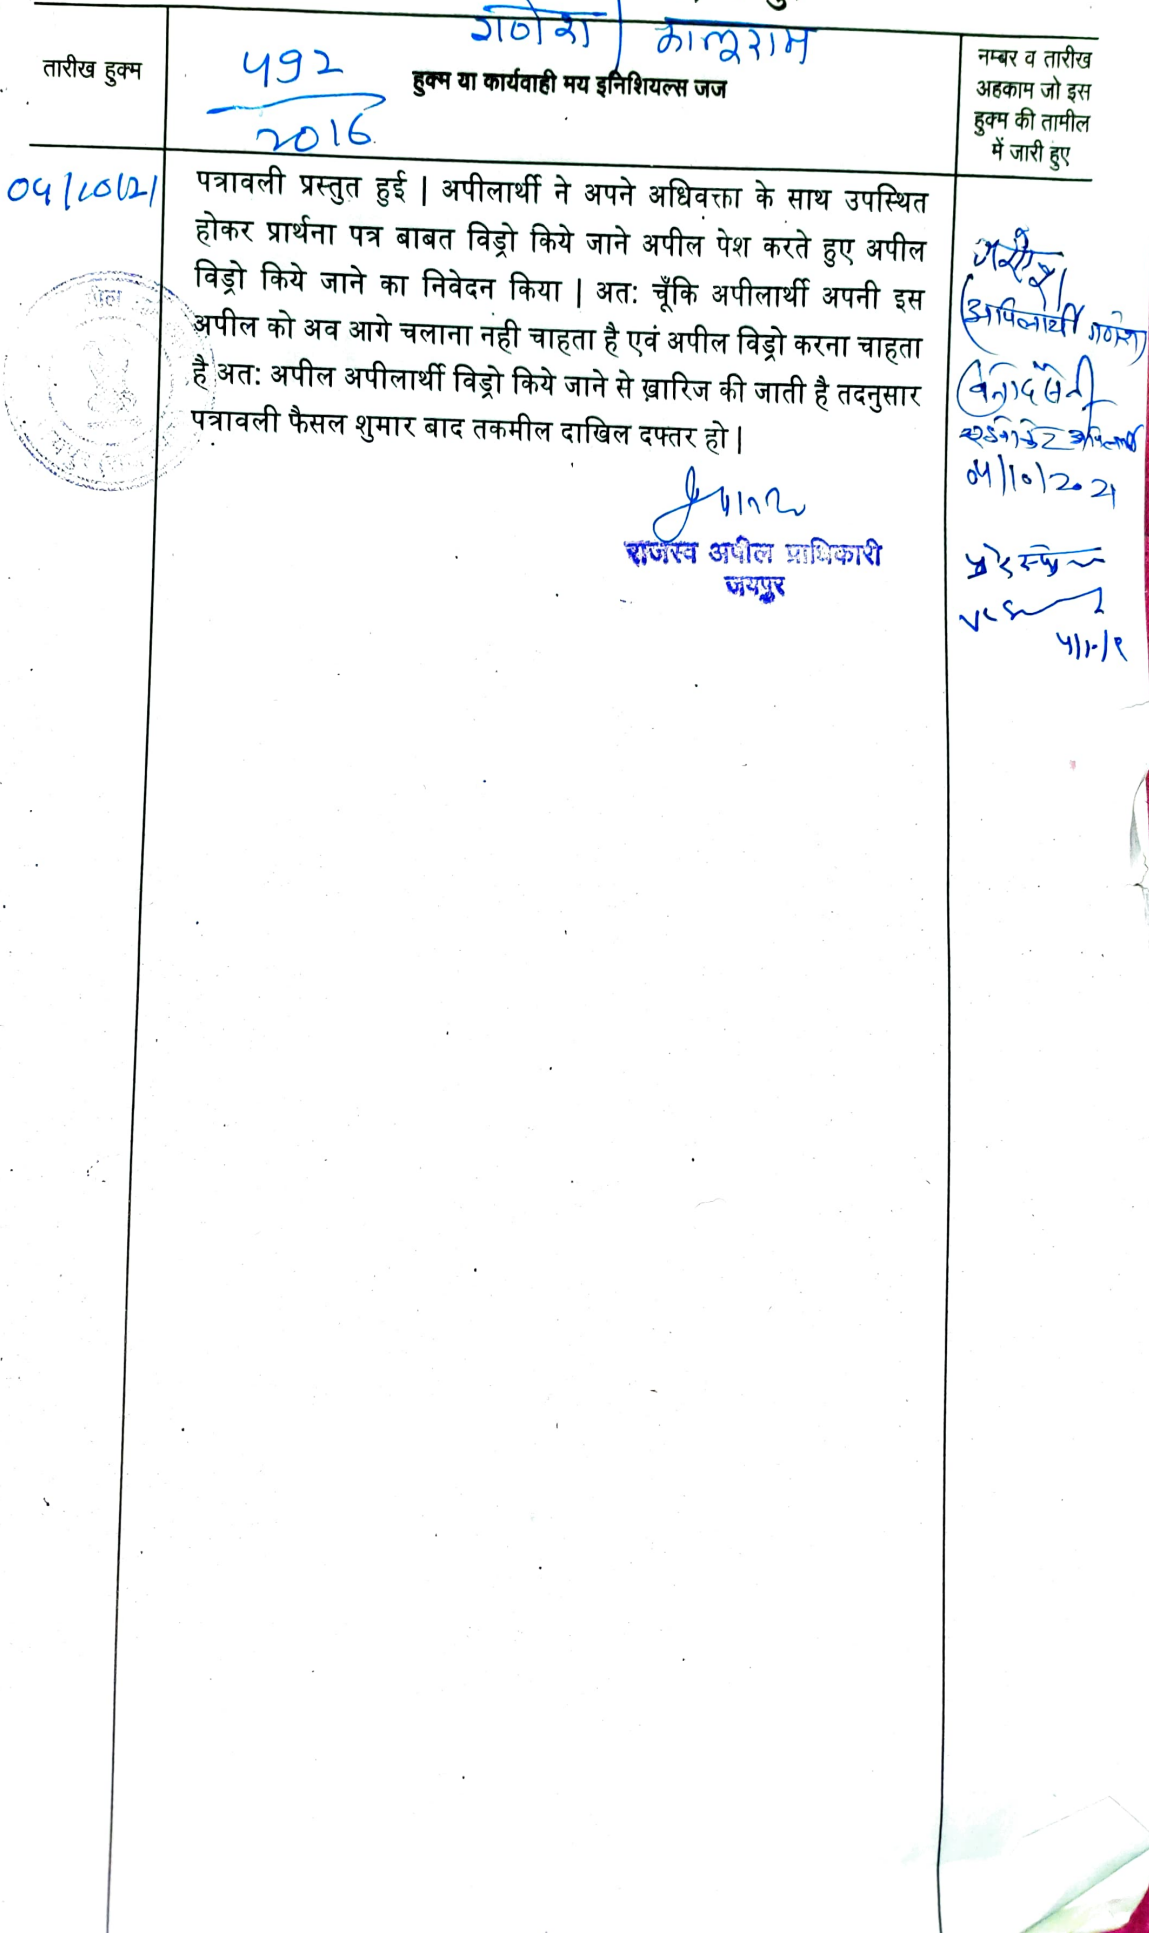 गणेश / कालूराम
तारीख हुक्म
492
2016
हुक्म या कार्यवाही मय इनिशियल्स जज
नम्बर व तारीख
अहकाम जो इस
हुक्म की तामील
में जारी हुए
04/10/21
पत्रावली प्रस्तुत हुई | अपीलार्थी ने अपने अधिवक्ता के साथ उपस्थित
होकर प्रार्थना पत्र बाबत विड्रो किये जाने अपील पेश करते हुए अपील
विड्रो किये जाने का निवेदन किया | अत: चूँकि अपीलार्थी अपनी इस
अपील को अव आगे चलाना नही चाहता है एवं अपील विड्रो करना चाहता
है अत: अपील अपीलार्थी विड्रो किये जाने से ख़ारिज की जाती है तदनुसार
पत्रावली फैसल शुमार बाद तकमील दाखिल दफ्तर हो |
राजस्व अपील प्राधिकारी
जयपुर
गणेश
(अपिलार्थी गणेश)
विनोद सैनी
04/10/2021